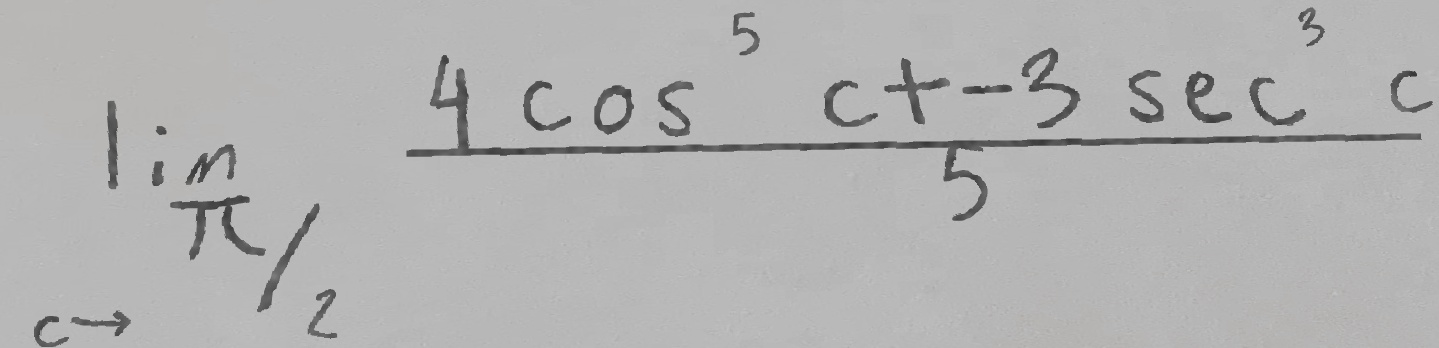 lim c→π/2 (4 cos^5 c + -3 sec^3 c)/5